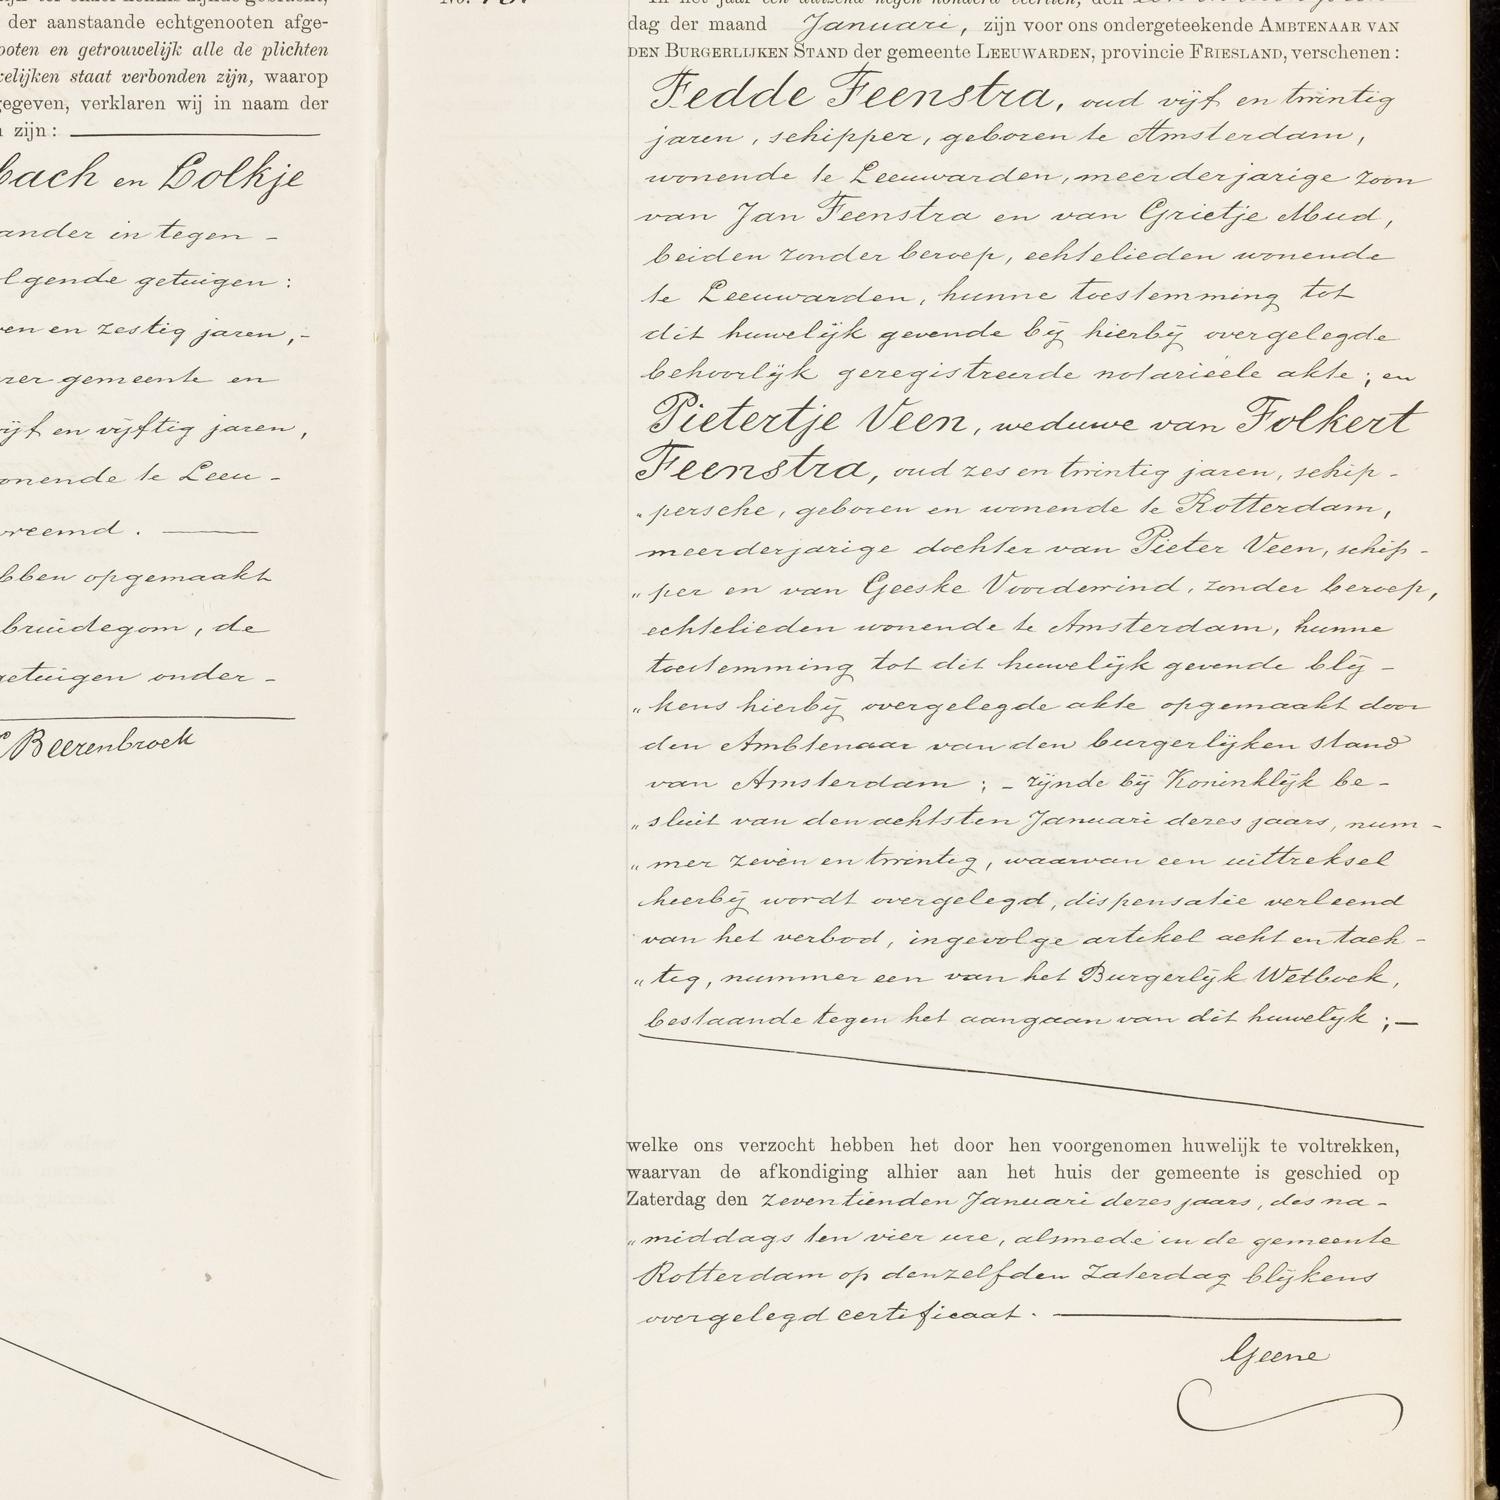 der aanstaande echtgenooten afge-
ooten en getrouwelijk alle de plichten
velijken staat verbonden zijn, waarop
gegeven, verklaren wij in naam der
zijn:
bach en Lolkje
ander in tegen -
lgende getuigen:
ven en zestig jaren,-
rzer gemeente en
vijf en vijftig jaren,
onende te Leeu -
vreemd.
bben opgemaakt
bruidegom, de
getuigen onder -
Beerenbroek
No.
In het jaar een duizend negen honderd veertien, den
dag der maand Januari, zijn voor ons ondergeteekende AMBTENAAR VAN
DEN BURGERLIJKEN STAND der gemeente LEEUWARDEN, provincie FRIESLAND, verschenen:
Fedde Feenstra, oud vijf en twintig
jaren, schipper, geboren te Amsterdam,
wonende te Leeuwarden, meerderjarige zoon
van Jan Feenstra en van Grietje Mud,
beiden zonder beroep, echtelieden wonende
te Leeuwarden, hunne toestemming tot
dit huwelijk gevende bij hierbij overgelegde
behoorlijk geregistreerde notariëele akte; en
Pietertje Veen, weduwe van Folkert
Feenstra, oud zes en twintig jaren, schip-
„persche, geboren en wonende te Rotterdam,
meerderjarige dochter van Pieter Veen, schip-
„per en van Geeske Voordewind, zonder beroep,
echtelieden wonende te Amsterdam, hunne
toestemming tot dit huwelijk gevende blij-
„kens hierbij overgelegde akte opgemaakt door
den Ambtenaar van den burgerlijken stand
van Amsterdam; - zijnde bij Koninklijk be-
„sluit van den achtsten Januari dezes jaars, num-
„mer zeven en twintig, waarvan een uittreksel
hierbij wordt overgelegd, dispensatie verleend
van het verbod, ingevolge artikel acht en tach-
„tig, nummer een van het Burgerlijk Wetboek,
bestaande tegen het aangaan van dit huwelijk;-
welke ons verzocht hebben het door hen voorgenomen huwelijk te voltrekken,
waarvan de afkondiging alhier aan het huis der gemeente is geschied op
Zaterdag den zeventienden Januari dezes jaars, des na-
„middags ten vier ure, alsmede in de gemeente
Rotterdam op denzelfden Zaterdag blijkens
overgelegd certificaat.
Geene